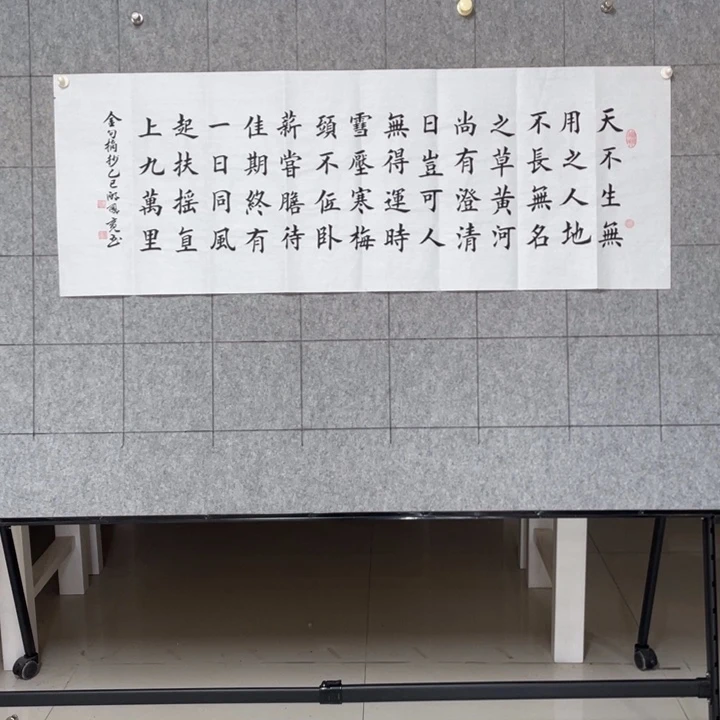 天不生無
用之人地
不長無名
之草黃河
尚有澄清
日豈可人
無得運時
雪壓寒梅
頭不低卧
薪嘗膽待
佳期終有
一日同風
起扶搖直
上九萬里
金句摘抄乙巳